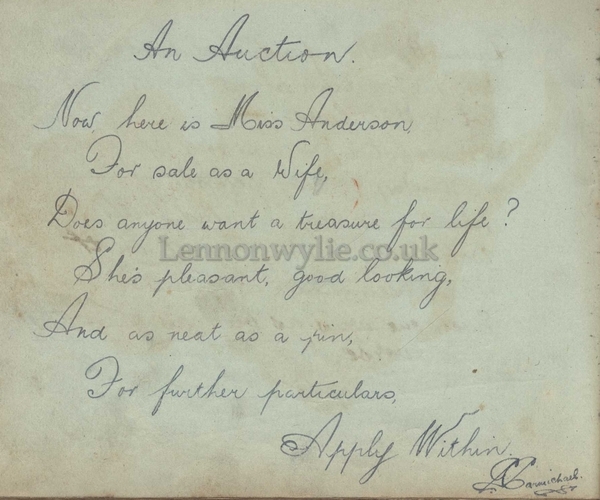 An Auction.
Now, here is Miss Anderson,
For sale as a Wife,
Does anyone want a treasure for life?
Lennonwylie.co.uk
She's pleasant, good looking,
And as neat as a pin,
For further particulars,
Apply Within.
Carmichael.